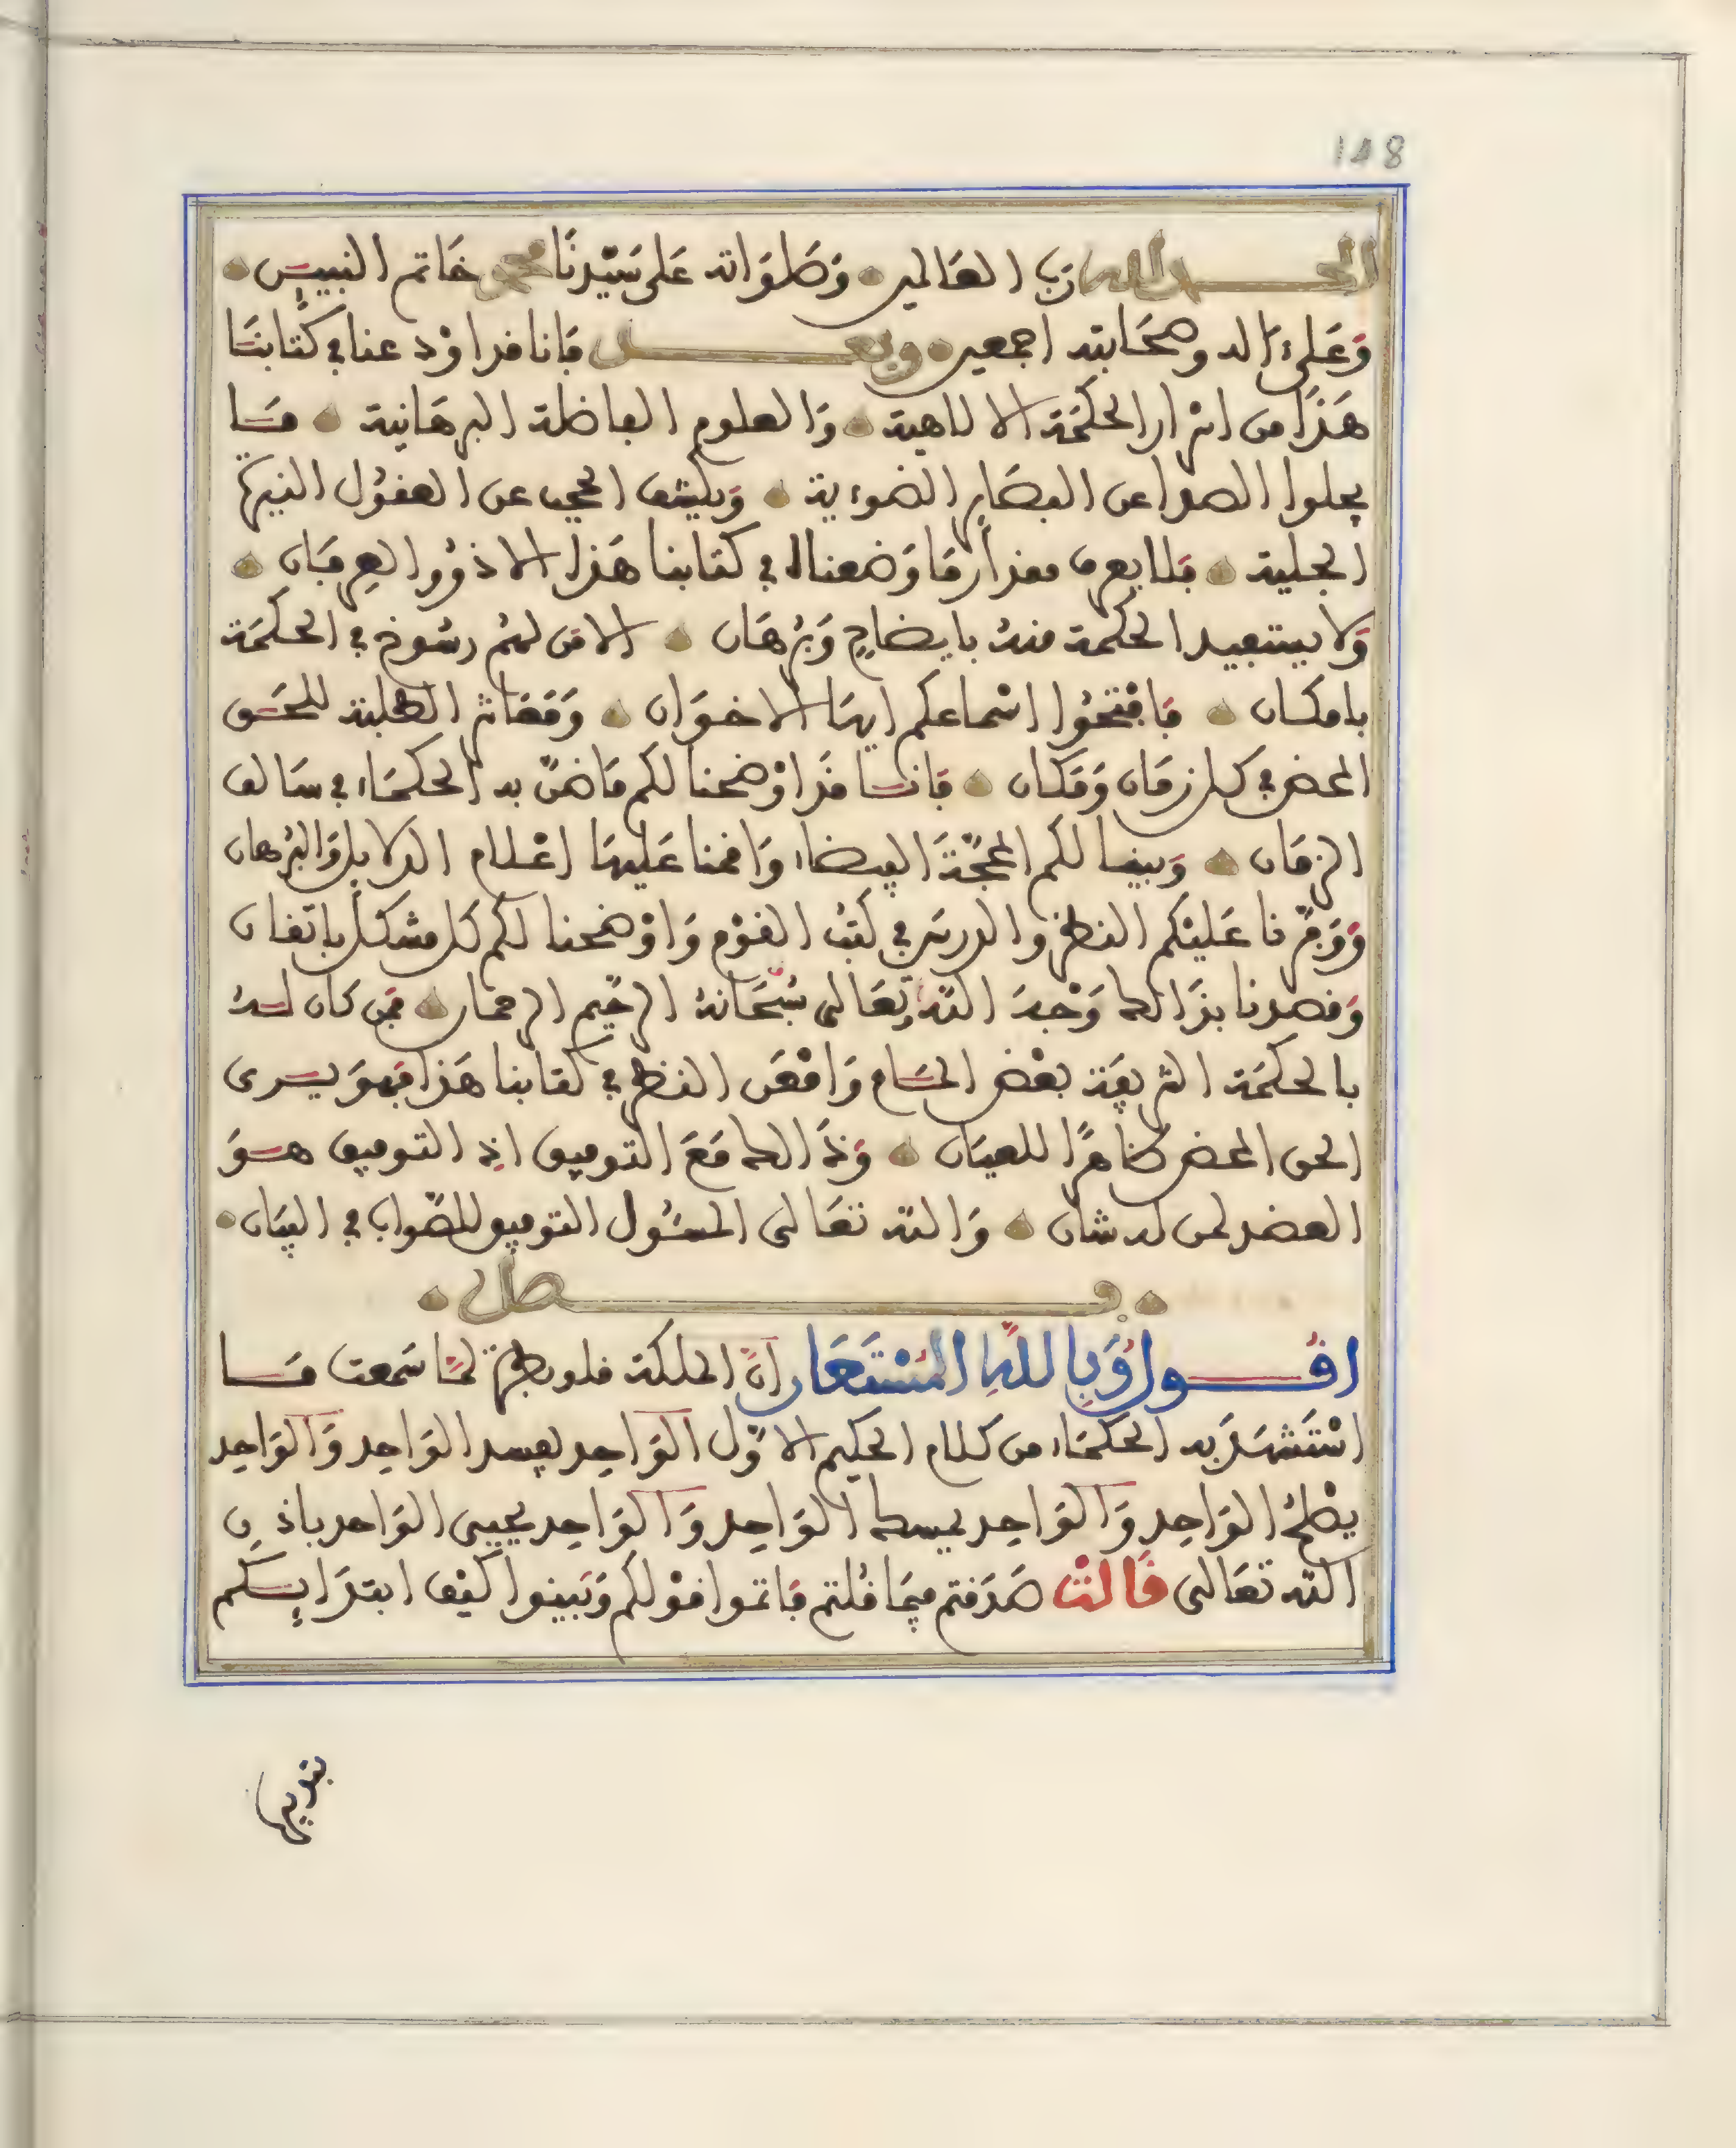 148
الحمد لله رب العالمين وصلواته على سيدنا محمد خاتم النبيين
وعلى ءاله وصحابته اجمعين وبعد فانا قد اودعنا في كتابنا
هذا من اسرار الحكمة الالاهية والعلوم الفاضلة البرهانية ما
يجلوا الصدا عن البصاير الضوءية ويكشف الحجب عن العقول النيرة
الجلية فلا يعرف مقدار ما وضعناه في كتابنا هذا الا ذووا العرفان
ولا يستفيد الحكمة منه بايضاح وبرهان الا من لهم رسوخ في الحكمة
بامكان فافتحوا اسماعكم ايها الاخوان ومعاشر الطلبة للحق
المحض في كل زمان ومكان فانا قد اوضحنا لكم ما ضن به الحكماء في سالف
الزمان وبينا لكم المحجة البيضاء واقمنا عليها اعلام الدلايل والبرهان
ووفرنا عليكم النظر والدرس في كتب القوم واوضحنا لكم كل مشكل باتقان
وقصدنا بذالك وجه الله تعالى سبحانه الرحيم الرحمان فمن كان له
بالحكمة الشريفة بعض المام وامعن النظر في كتابنا هذا فهو يرى
الحق المحض ظاهرا للعيان وذالك مع التوفيق اذ التوفيق هو
العضد لمن له شان والله تعالى المسئول التوفيق للصواب في البيان
فصل
اقول وبالله المستعان ان الملكة قلوبطرة لما سمعت ما
استشهد به الحكماء من كلام الحكيم الاول الواحد يفسد الواحد والواحد
يصلح الواحد والواحد يمسك الواحد والواحد يحيي الواحد باذن
الله تعالى قالت صدقتم فيما قلتم فاتموا قولكم وبينوا كيف ابتدايكم